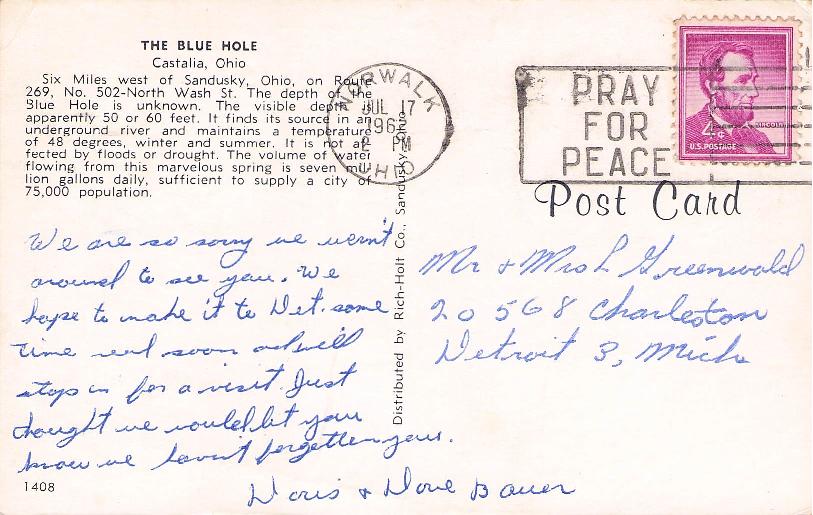 THE BLUE HOLE
Castalia, Ohio
Six Miles west of Sandusky, Ohio, on Route
269, No. 502-North Wash St. The depth of the
Blue Hole is unknown. The visible depth is
apparently 50 or 60 feet. It finds its source in an
underground river and maintains a temperature
of 48 degrees, winter and summer. It is not af-
fected by floods or drought. The volume of water
flowing from this marvelous spring is seven mil-
lion gallons daily, sufficient to supply a city of
75,000 population.
We are so sorry we wernt
around to see you. We
hope to make it to Det. some
time real soon and will
stop in for a visit. Just
thought we would let you
know we havent forgotten you.
Doris & Dave Bauer
1408
Distributed by Rich-Holt Co., Sandusky, Ohio
NORWALK
JUL 17
2 PM
OHIO
PRAY
FOR
PEACE
LINCOLN
4¢
U.S. POSTAGE
Post Card
Mr & Mrs L Greenwald
20568 Charleston
Detroit 3, Mich